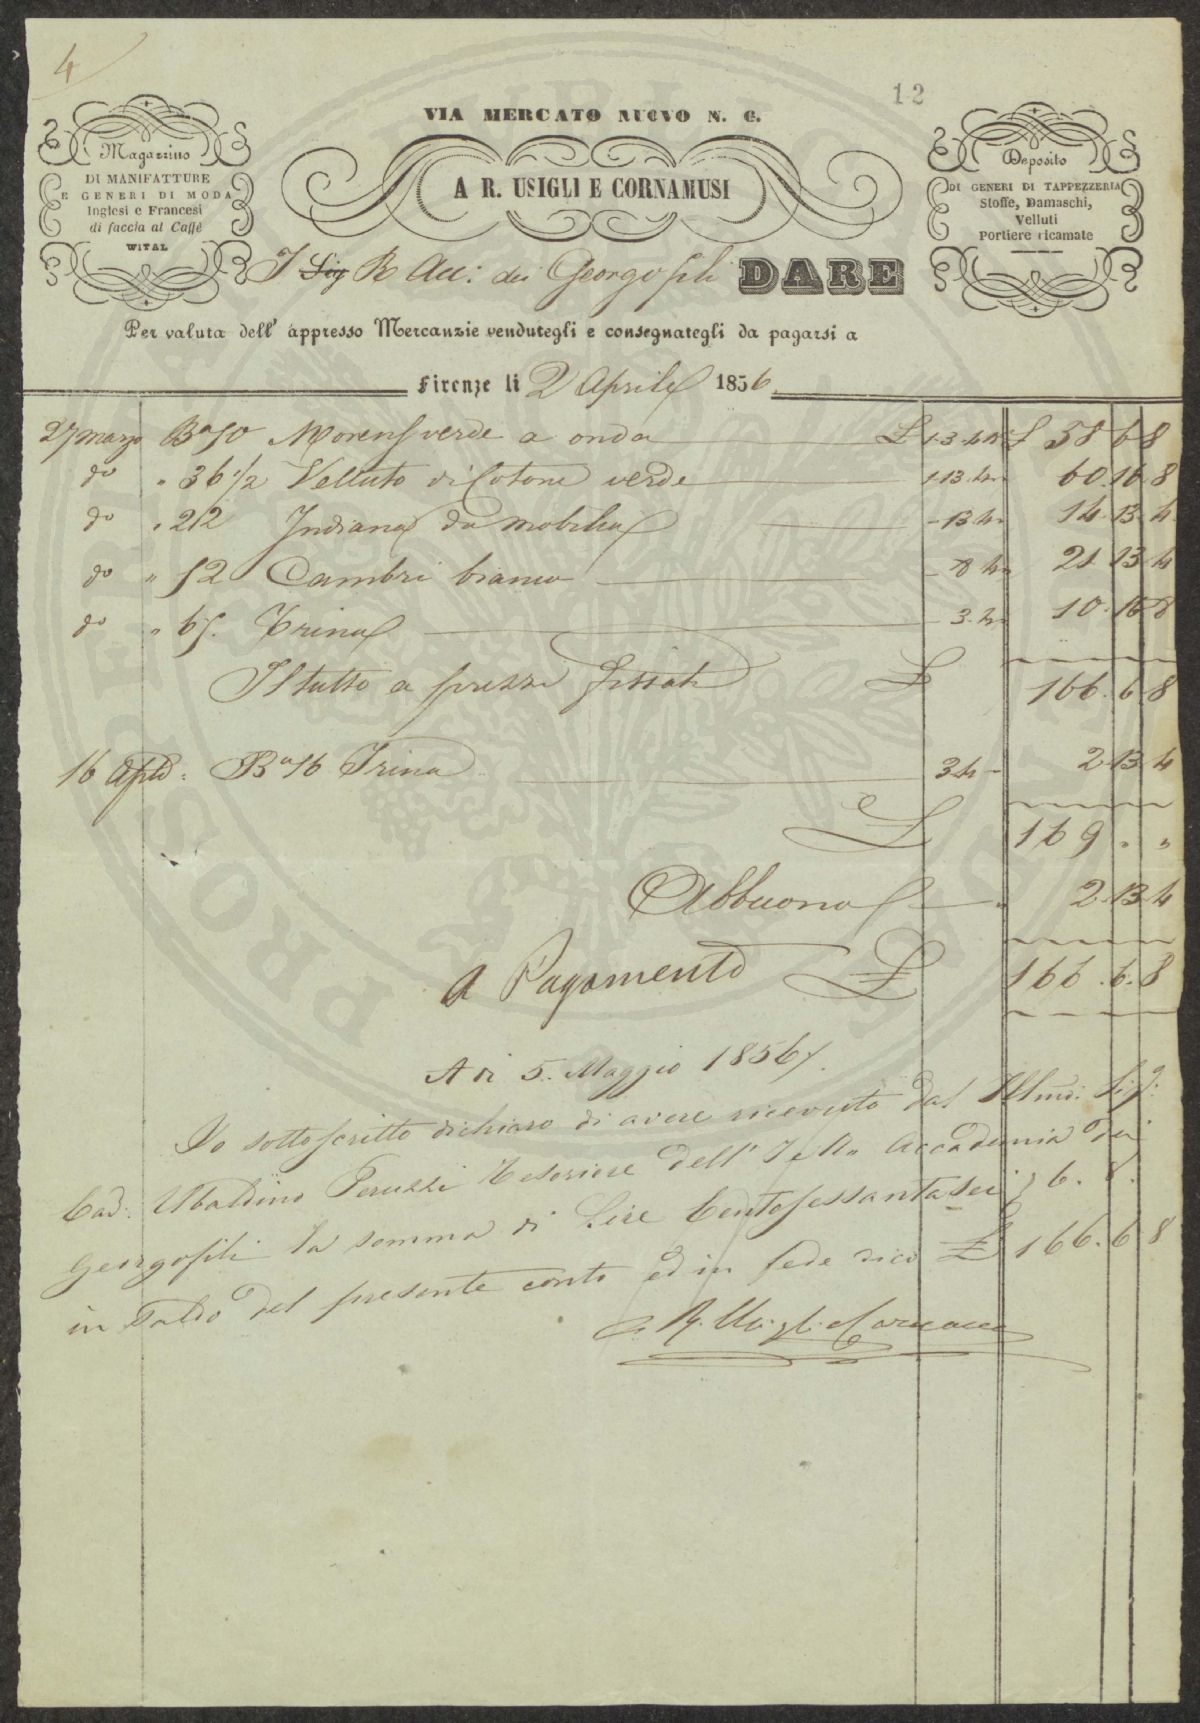 4
12
VIA MERCATO NUOVO N. 6.
Magazzino
DI MANIFATTURE
E GENERI DI MODA
Inglesi e Francesi
di faccia al Caffè
WITAL
A R. USIGLI E CORNAMUSI
Deposito
DI GENERI DI TAPPEZZERIA
Stoffe, Damaschi,
Velluti
Portiere ricamate
I Sig R Acc: dei Georgofili DARE
Per valuta dell' appresso Mercanzie vendutegli e consegnategli da pagarsi a
Firenze li 2 Aprile 1856
27 marzo Ba 50 verde a onda £ 1.3.4 £ 58 6 8
do " 36 1/2 Velluto di Cotone verde 1.13.4 60.16.8
do " 22 Indiana da mobilia - 13.4 14.13.4
do " 52 Cambri bianco - 8 4 21 13 4
do " 65. Trina 3.4 10.16 8
Il tutto a prezzi fissati £ 166.6.8
16 Aple: Ba 16 Trina 3 4 - 2.13.4
£ 169 " "
Abbuono 2.13.4
A Pagamento £ 166.6.8
A di 5. Maggio 1856
Io sottoscritto dichiaro di avere ricevuto dal Illmo: Sigr:
Cav: Ubaldino Peruzzi Tesoriere dell' I e R Accademia dei
Georgofili la somma di Lire Centosessantasei, 6. 8.
in saldo del presente conto ed in fede dico £ 166.6 8
A R. Usigli e
PROSPERITÀ PUBBLICA